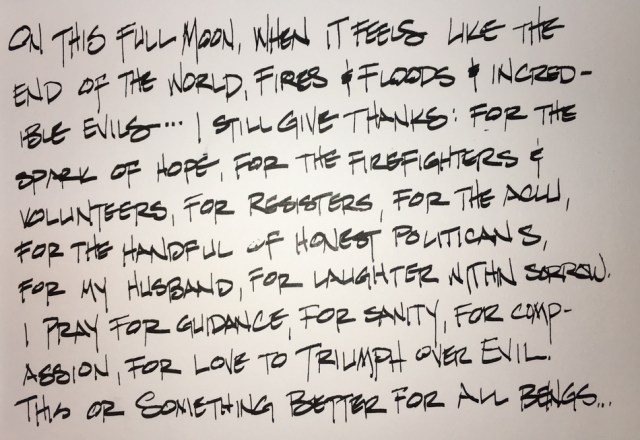 ON THIS FULL MOON, WHEN IT FEELS LIKE THE
END OF THE WORLD, FIRES & FLOODS & INCRED-
IBLE EVILS... I STILL GIVE THANKS: FOR THE
SPARK OF HOPE, FOR THE FIREFIGHTERS &
VOLUNTEERS, FOR RESISTERS, FOR THE ACLU,
FOR THE HANDFUL OF HONEST POLITICANS,
FOR MY HUSBAND, FOR LAUGHTER WITHN SORROW.
I PRAY FOR GUIDANCE, FOR SANITY, FOR COMP-
ASSION, FOR LOVE TO TRIUMPH OVER EVIL.
THIS OR SOMETHING BETTER FOR ALL BEINGS...